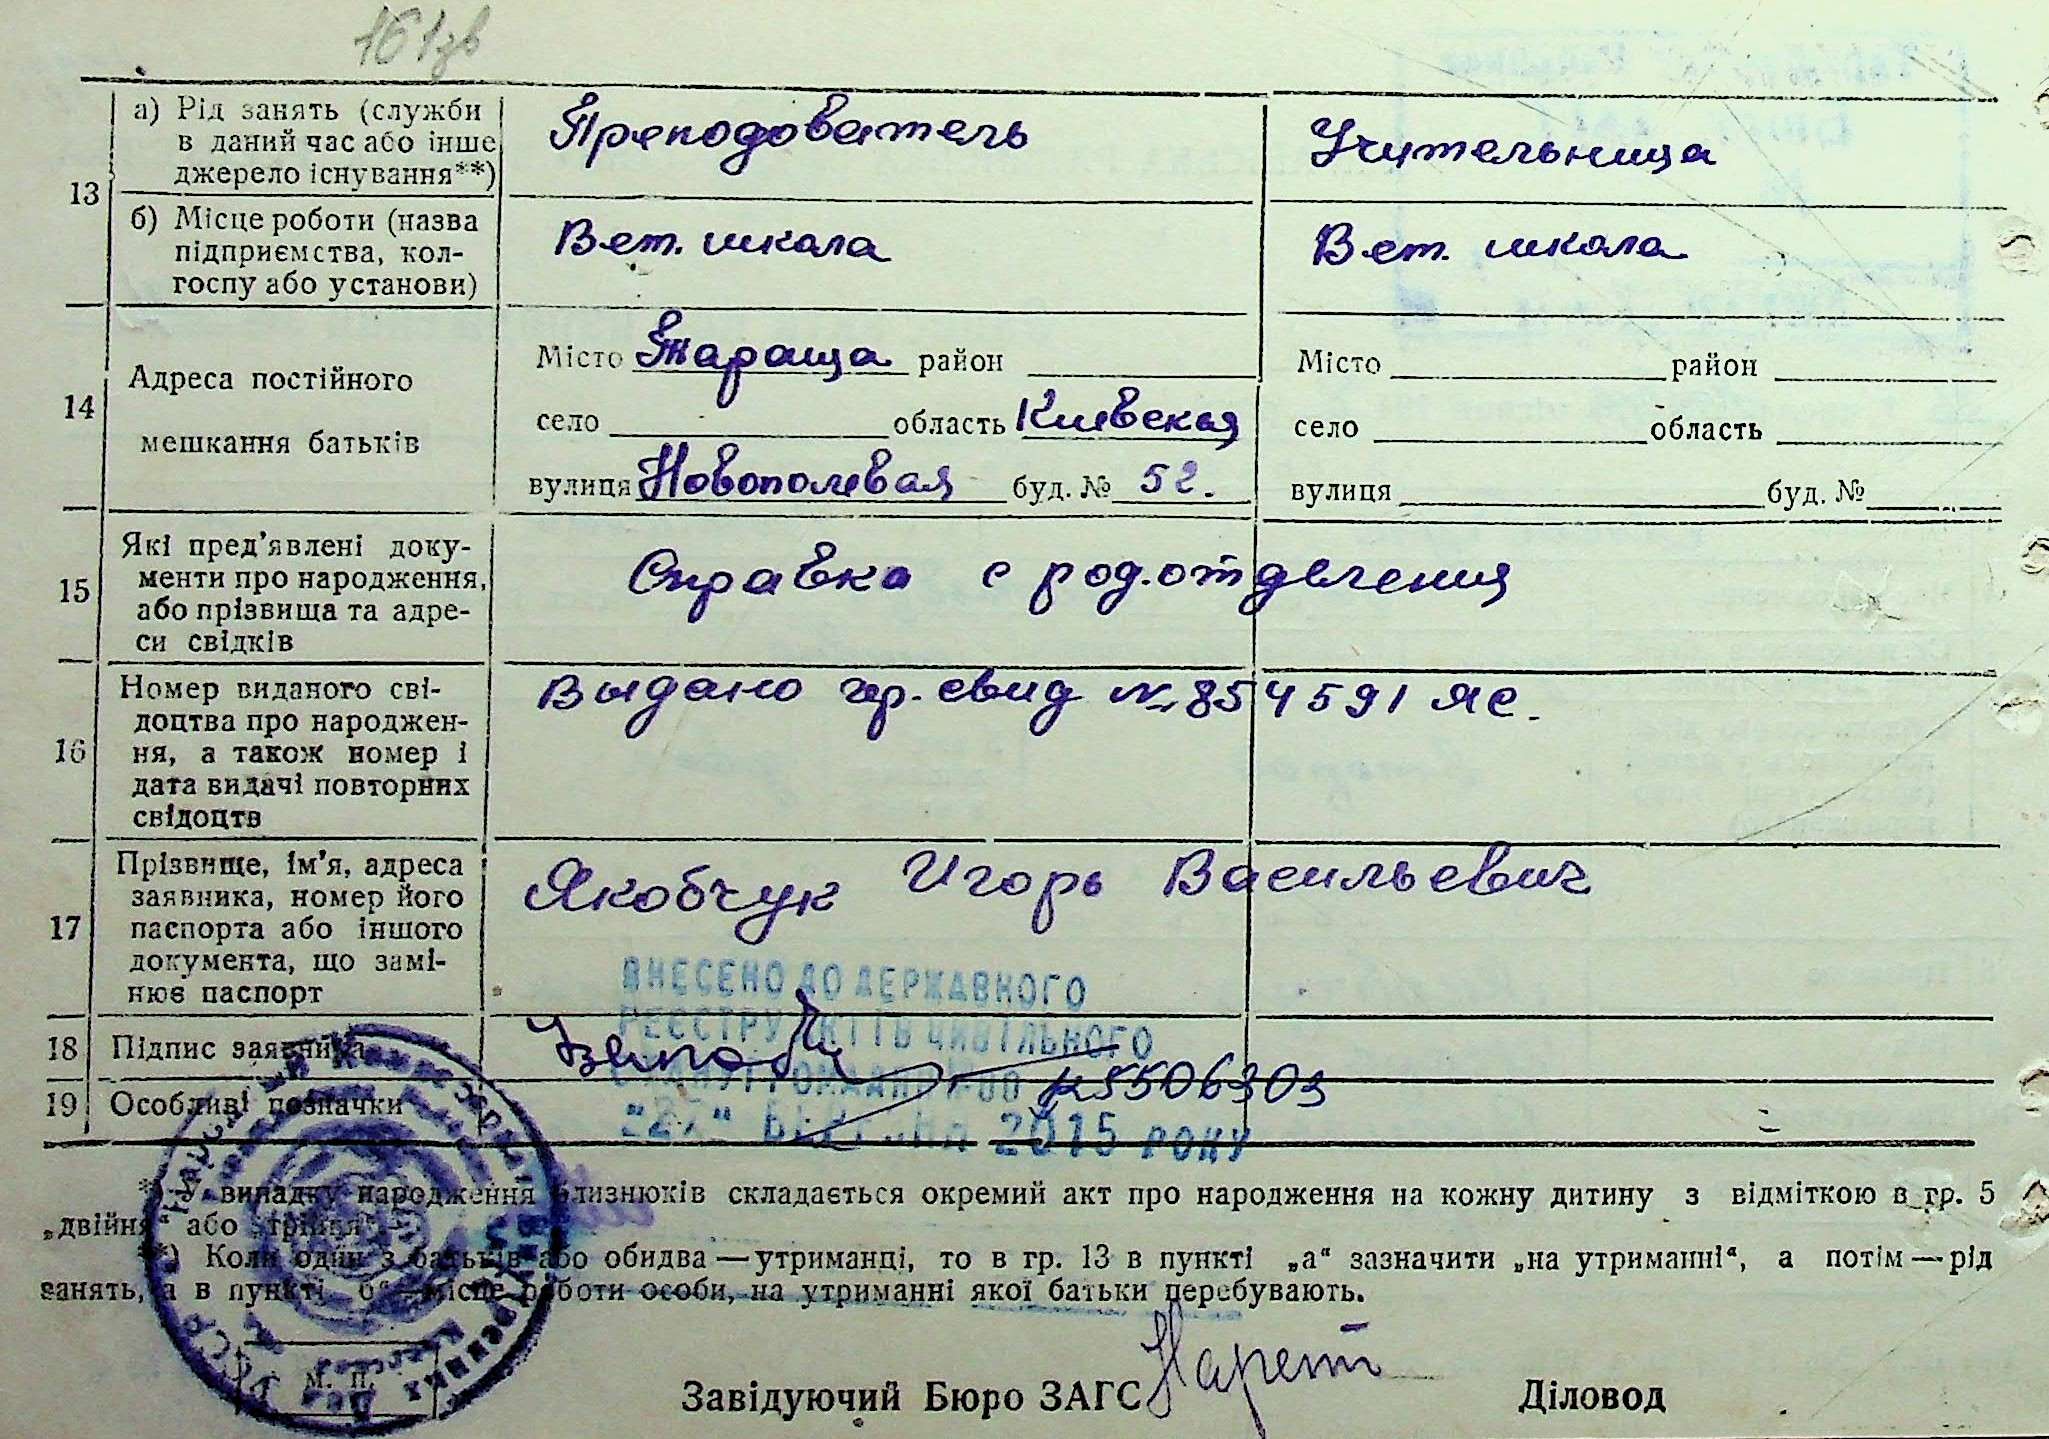 161зв
13
а) Рід занять (служби
в даний час або інше
джерело існування**)
Преподователь
Учительница
б) Місце роботи (назва
підприємства, кол-
госпу або установи)
Вет. школа
Вет. школа
14
Адреса постійного
мешкання батьків
Місто Тараща район
село область Киевская
вулиця Новополевая буд. № 52.
Місто район
село область
вулиця буд. №
15
Які пред'явлені доку-
менти про народження,
або прізвища та адре-
си свідків
Справка с род.отделения
16
Номер виданого сві-
доцтва про народжен-
ня, а також номер і
дата видачі повторних
свідоцтв
Выдано гр. свид № 854591 ЯС.
17
Прізвище, ім'я, адреса
заявника, номер його
паспорта або іншого
документа, що замі-
нює паспорт
Якобчук Игорь Васильевич
ВНЕСЕНО ДО ДЕРЖАВНОГО
РЕЄСТРУ АКТІВ ЦИВІЛЬНОГО
18 Підпис заявника
19 Особливі позначки
2015 РОКУ
*) У випадку народження близнюків складається окремий акт про народження на кожну дитину з відміткою в гр. 5
„двійня“ або „трійня“.
**) Коли один з батьків або обидва — утриманці, то в гр. 13 в пункті „а“ зазначити „на утриманні“, а потім — рід
занять, а в пункті „б“ — місце роботи особи, на утриманні якої батьки перебувають.
М. П.
Завідуючий Бюро ЗАГС
Діловод